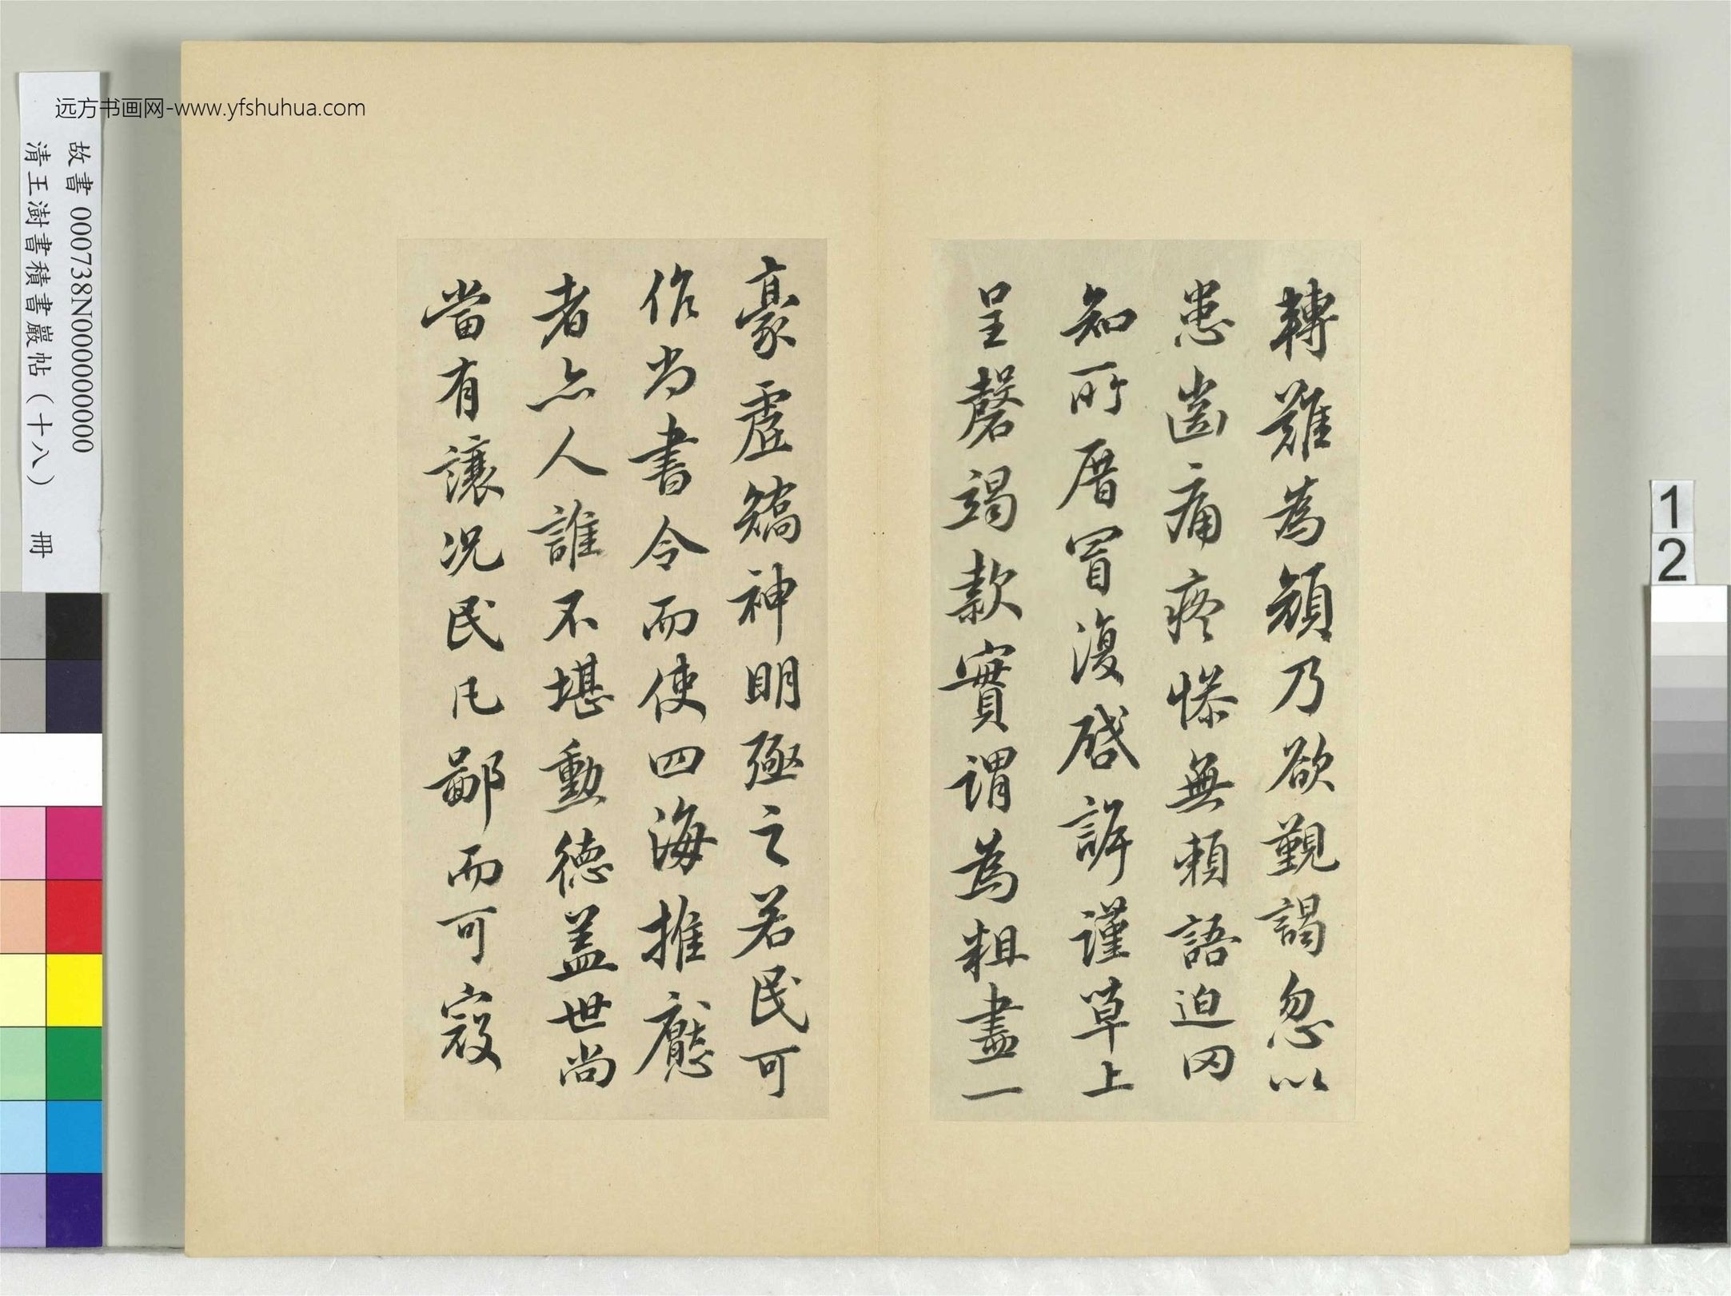 远方书画网-www.yfshuhua.com
故書 000738N000000000
清王澍書積書巖帖（十八） 冊
1
2
轉難為頻乃欲覲謁忽以
患齒痛疼慘無賴語迫罔
知所厝冒復啓訴謹草上
呈罄竭款實謂為粗盡一
豪虛矯神明殛之若民可
作尚書令而使四海推懕
者亦人誰不堪勳德蓋世尚
當有讓況民凡鄙而可寇